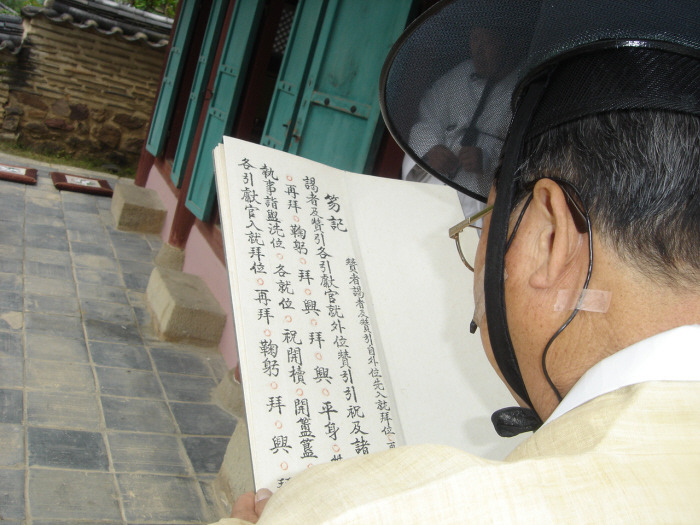 笏記 贊者謁者及贊引自外位先入就拜位○再
謁者及贊引各引獻官就外位贊引引祝及諸
○再拜○鞠躬○拜○興○拜○興○平身○
執事詣盥洗位○各就位○祝開櫝○開簠簋
各引獻官入就拜位○再拜○鞠躬○拜○興○拜